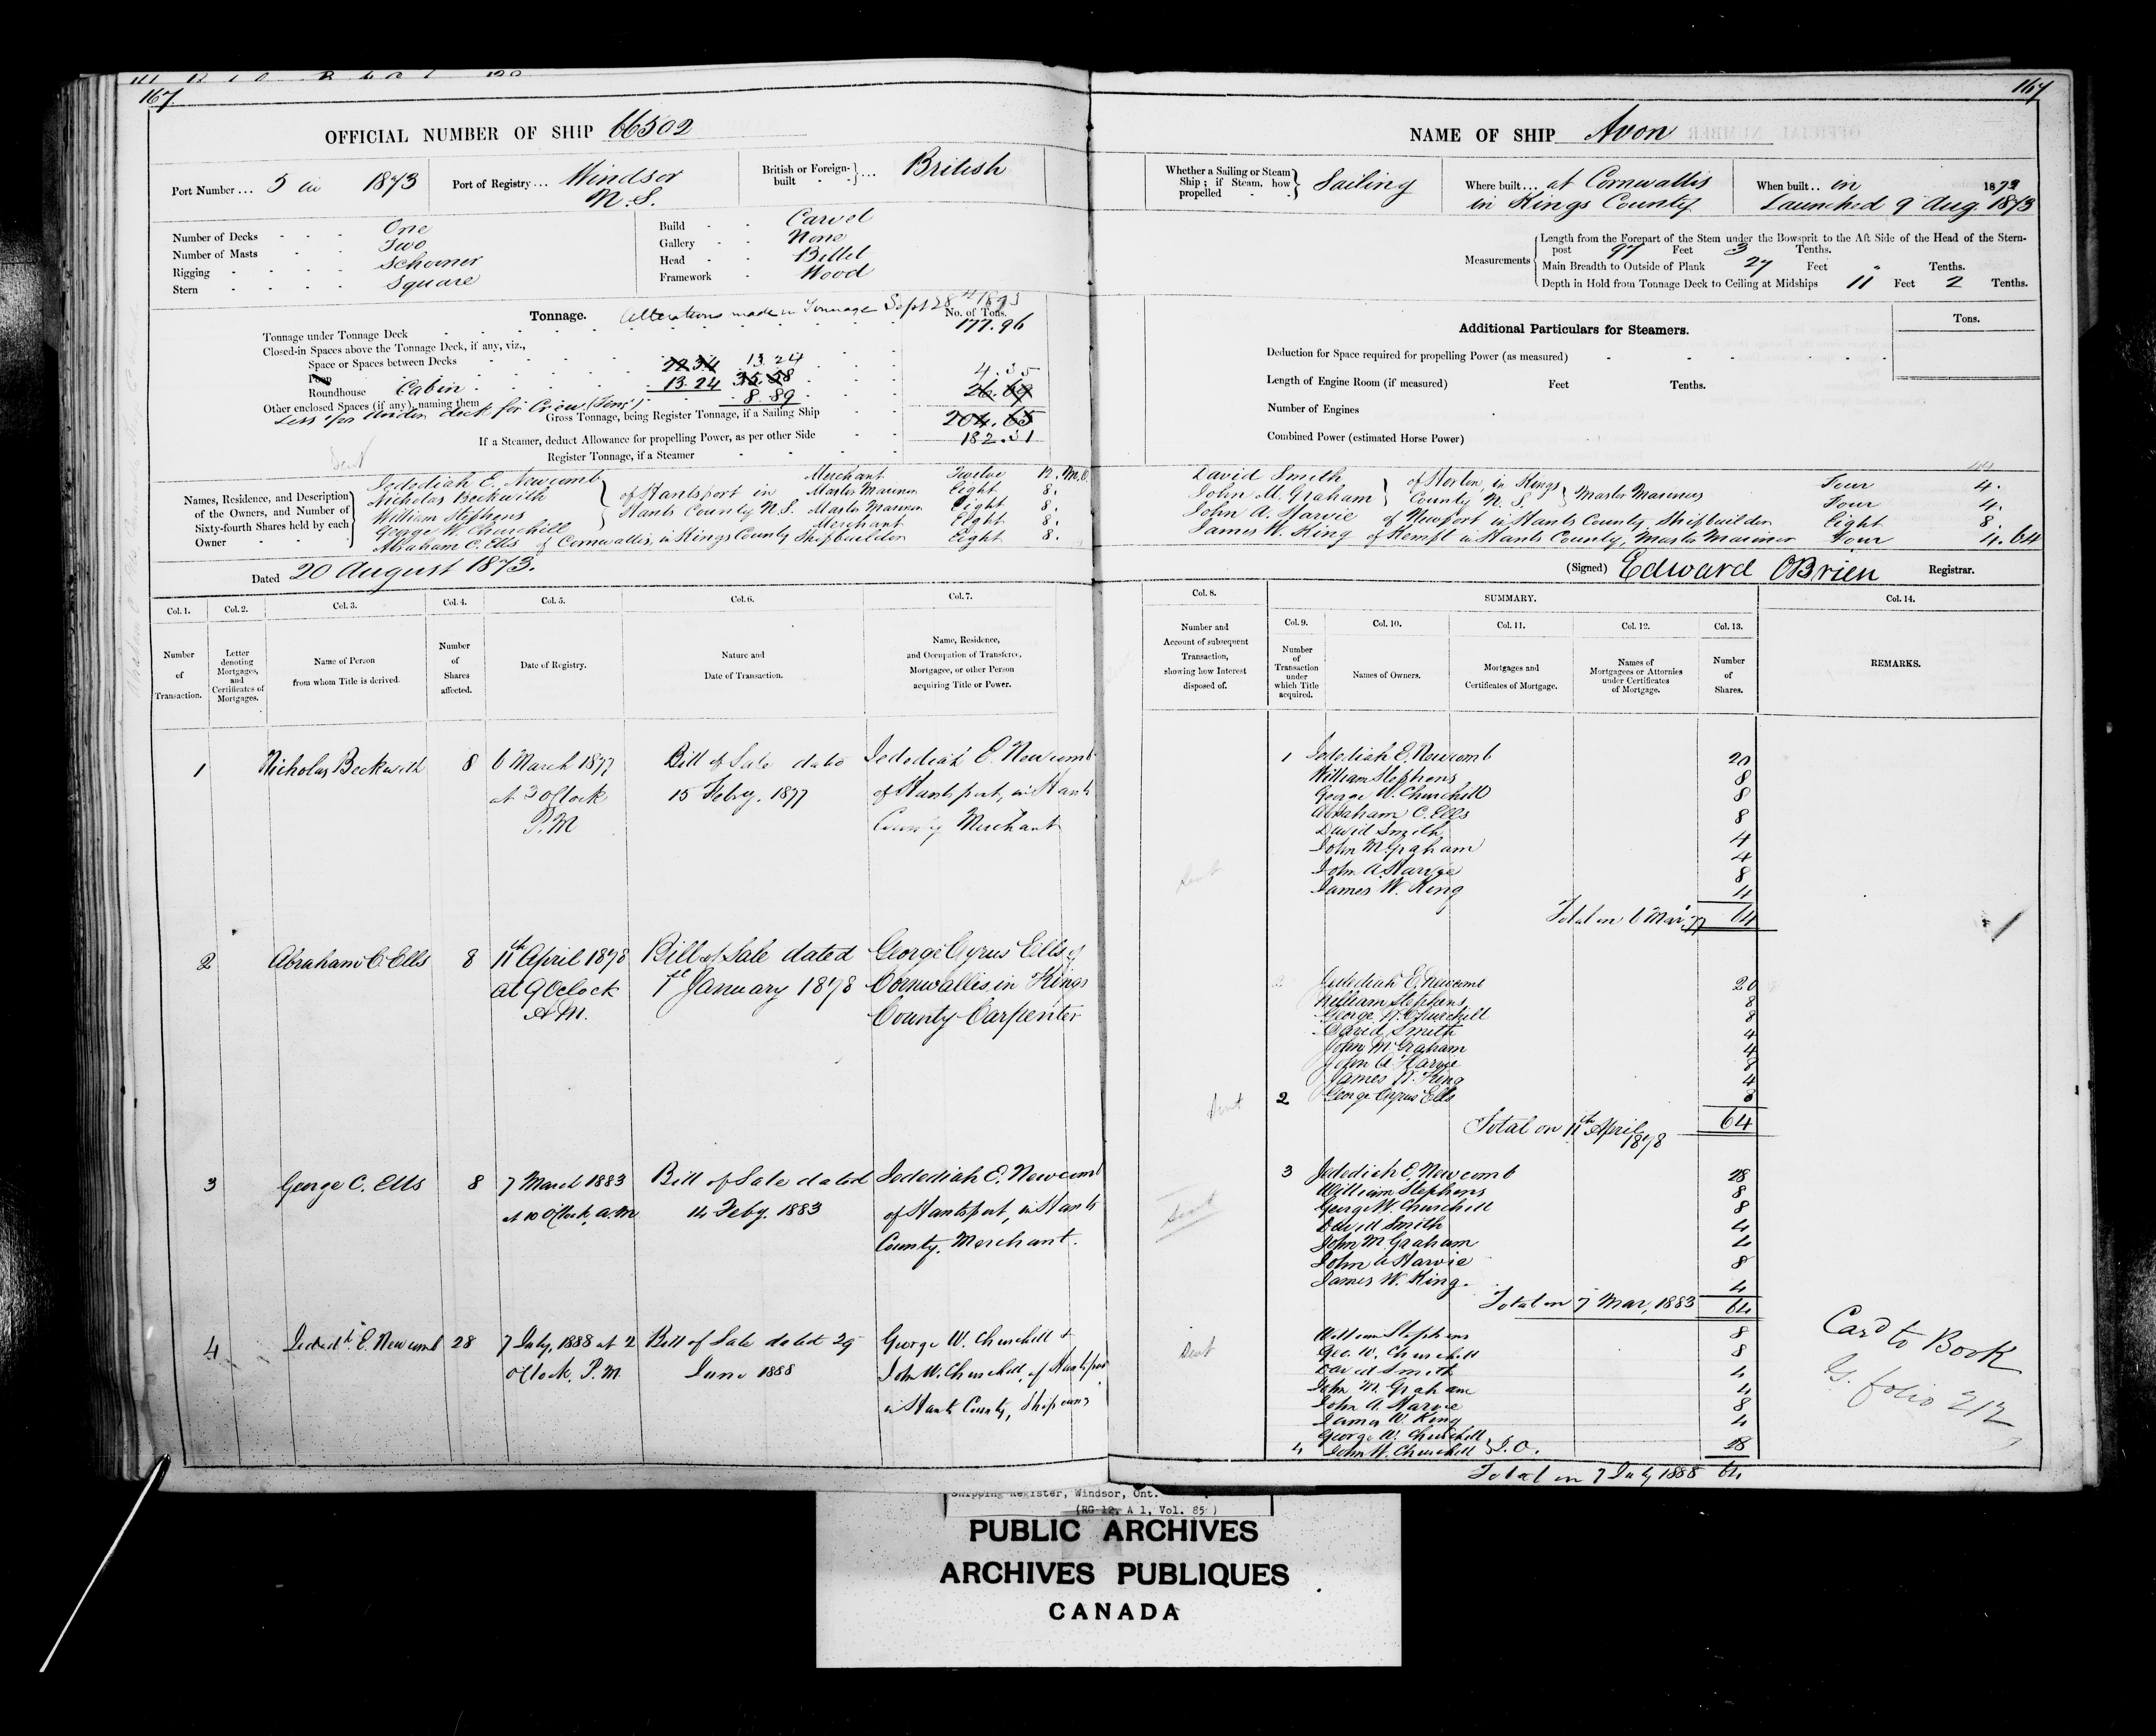 167
OFFICIAL NUMBER OF SHIP 66502
Port Number ... 5 in 1873
Port of Registry ... Windsor N.S.
British or Foreign-built ... British
Number of Decks One
Number of Masts Two
Rigging Schooner
Stern Square
Build Carvel
Gallery None
Head Billet
Framework Wood
Tonnage. Alterations made in Tonnage Sept 28th 1873
No. of Tons.
Tonnage under Tonnage Deck 177.96
Closed-in Spaces above the Tonnage Deck, if any, viz.,
Space or Spaces between Decks 22.34 13.24
Poop 4.35
Roundhouse Cabin 13.24 35.58 26.69
Other enclosed Spaces (if any), naming them 8.89
Less for Under deck for Crew (Tons)
Gross Tonnage, being Register Tonnage, if a Sailing Ship 204.65
If a Steamer, deduct Allowance for propelling Power, as per other Side 182.31
Register Tonnage, if a Steamer
Sent
Names, Residence, and Description of the Owners, and Number of Sixty-fourth Shares held by each Owner
Jedediah E. Newcomb Merchant Twelve 12.
Nicholas Beckwith of Hantsport in Master Mariner Eight 8.
William Stephens Hants County N.S. Master Mariner Eight 8.
George W. Churchill Merchant Eight 8.
Abraham C. Ells of Cornwallis, in Kings County Shipbuilder Eight 8.
Dated 20 August 1873.
Col. 1. Col. 2. Col. 3. Col. 4. Col. 5. Col. 6. Col. 7.
Number of Transaction.
Letter denoting Mortgages, and Certificates of Mortgages.
Name of Person from whom Title is derived.
Number of Shares affected.
Date of Registry.
Nature and Date of Transaction.
Name, Residence, and Occupation of Transferee, Mortgagee, or other Person acquiring Title or Power.
1 Nicholas Beckwith 8 6 March 1877 Bill of Sale date Jedediah E. Newcomb
at 3 oClock 15 Febry. 1877 of Hantsport, in Hants
P.M County Merchant
2 Abraham C. Ells 8 11th April 1878 Bill of Sale dated George Cyrus Ells of
at 9 OClock 1st January 1878 Cornwallis in Kings
A.M. County Carpenter
3 George C. Ells 8 7 March 1883 Bill of Sale dated Jedediah E. Newcomb
at 10 oClock, a.m 14 Feby. 1883 of Hantsport, in Hants
County, Merchant.
4 Jededh. E. Newcomb 28 7 July, 1888 at 2 Bill of Sale dated 29 George W. Churchill &
oClock, P.M. June 1888 John W. Churchill, of Hantsport
in Hants County,
167
NAME OF SHIP Avon
Whether a Sailing or Steam Ship; if Steam, how propelled Sailing
Where built ... at Cornwallis in Kings County
When built .. in 1873
Launched 9 Aug. 1873
Measurements
Length from the Forepart of the Stem under the Bowsprit to the Aft Side of the Head of the Stern-
post 97 Feet 3 Tenths.
Main Breadth to Outside of Plank 27 Feet " Tenths.
Depth in Hold from Tonnage Deck to Ceiling at Midships 11 Feet 2 Tenths.
Additional Particulars for Steamers.
Tons.
Deduction for Space required for propelling Power (as measured)
Length of Engine Room (if measured) Feet Tenths.
Number of Engines
Combined Power (estimated Horse Power)
44
David Smith of Horton, in Kings Master Mariners Four 4.
John M. Graham County N.S. Four 4.
John A. Harvie of Newport in Hants County, Shipbuilder Eight 8.
James W. King of Kempt in Hants County, Master Mariner Four 4. 64
(Signed) Edward OBrien Registrar.
Col. 8. SUMMARY. Col. 14.
Col. 9. Col. 10. Col. 11. Col. 12. Col. 13.
Number and Account of subsequent Transaction, showing how Interest disposed of.
Number of Transaction under which Title acquired.
Names of Owners.
Mortgages and Certificates of Mortgage.
Names of Mortgagees or Attornies under Certificates of Mortgage.
Number of Shares.
REMARKS.
1 Jedediah E. Newcomb 20
William Stephens 8
George W. Churchill 8
Abraham C. Ells 8
David Smith 4
John M. Graham 4
John A. Harvie 8
Sent
James W. King 4
Total on 6 Mar, 77 64
Jedediah E. Newcomb 20
William Stephens 8
George W. Churchill 8
David Smith 4
John M Graham 4
John A Harvie 8
James W. King 4
Sent 2 George Cyrus Ells 8
Total on 11th April 1878 64
3 Jedediah E. Newcomb 28
William Stephens 8
George W. Churchill 8
Sent
David Smith 4
John M. Graham 4
John A Harvie 8
James W. King. 4
Total on 7 Mar, 1883 64
William Stephens 8
Sent Geo. W. Churchill 8
David Smith 4
John M. Graham 4
John A. Harvie 8
James W. King 4
George W. Churchill
4 John W. Churchill J.O. 28
Total on 7 July 1888 64
Card to Book
G. folio 212
Shipping Register, Windsor, Ont.
(RG 12, A 1, Vol. 85)
PUBLIC ARCHIVES
ARCHIVES PUBLIQUES
CANADA